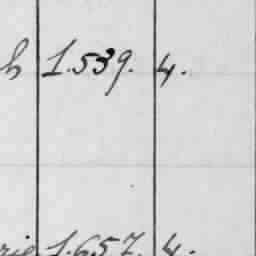 h 1.539. 4.
rie 1.657. 4.